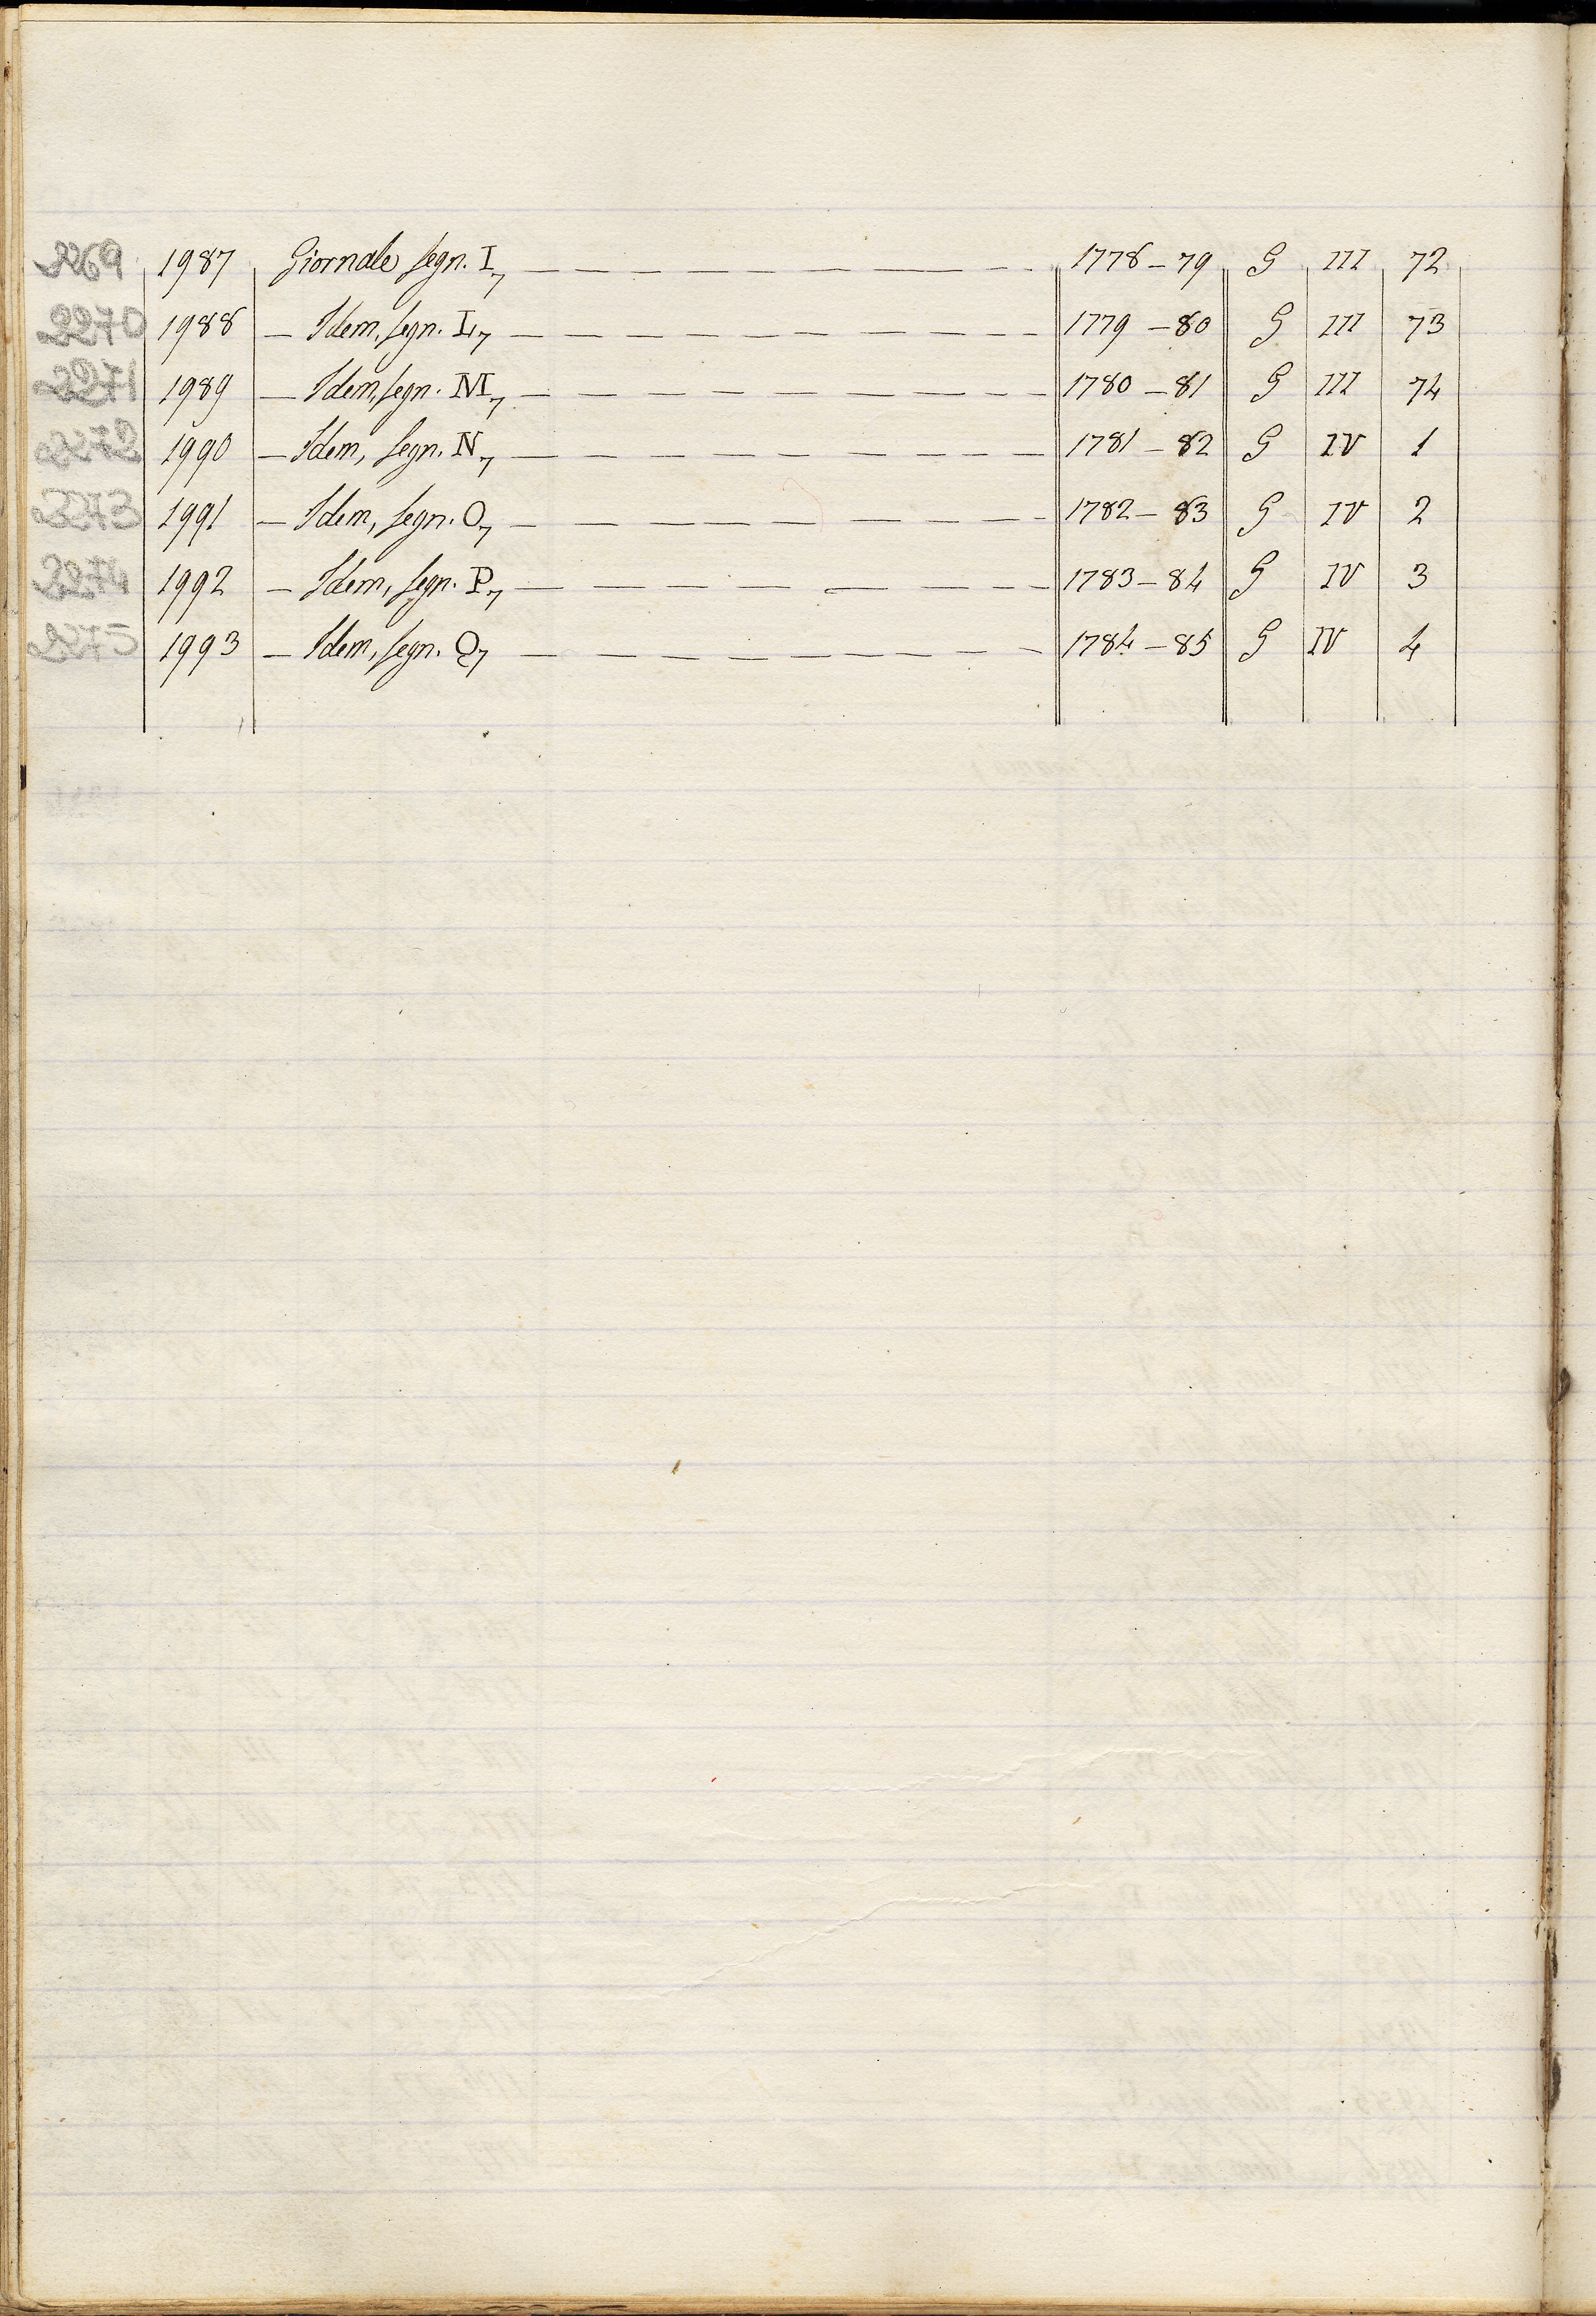 2269 1987 Giornale segn. I7 1778-79 G III 72
2270 1988 - Idem, segn. L7 1779-80 G III 73
2271 1989 - Idem, segn. M7 1780-81 G III 74
2272 1990 - Idem, segn. N7 1781-82 G IV 1
2273 1991 - Idem, segn. O7 1782-83 G IV 2
2274 1992 - Idem, segn. P7 1783-84 G IV 3
2275 1993 - Idem, segn. Q7 1784-85 G IV 4